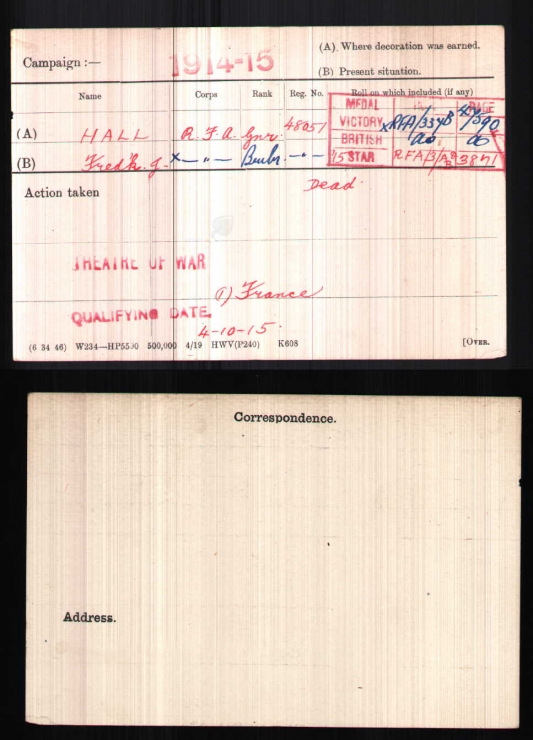 Campaign :— 1914-15 (A). Where decoration was earned.
(B) Present situation.
Name Corps Rank Reg. No. Roll on which included (if any)
MEDAL PAGE
(A) HALL R. F. A. Gnr. 48051 VICTORY RFA/337B
BRITISH do do
(B) Fredk. J. X — " — Bmbr. — " — '15 STAR RFA/3/A 3871
Action taken Dead.
THEATRE OF WAR
(1) France
QUALIFYING DATE.
4-10-15.
(6 34 46) W234—HP5590 500,000 4/19 HWV(P240) K608 [OVER.
Correspondence.
Address.